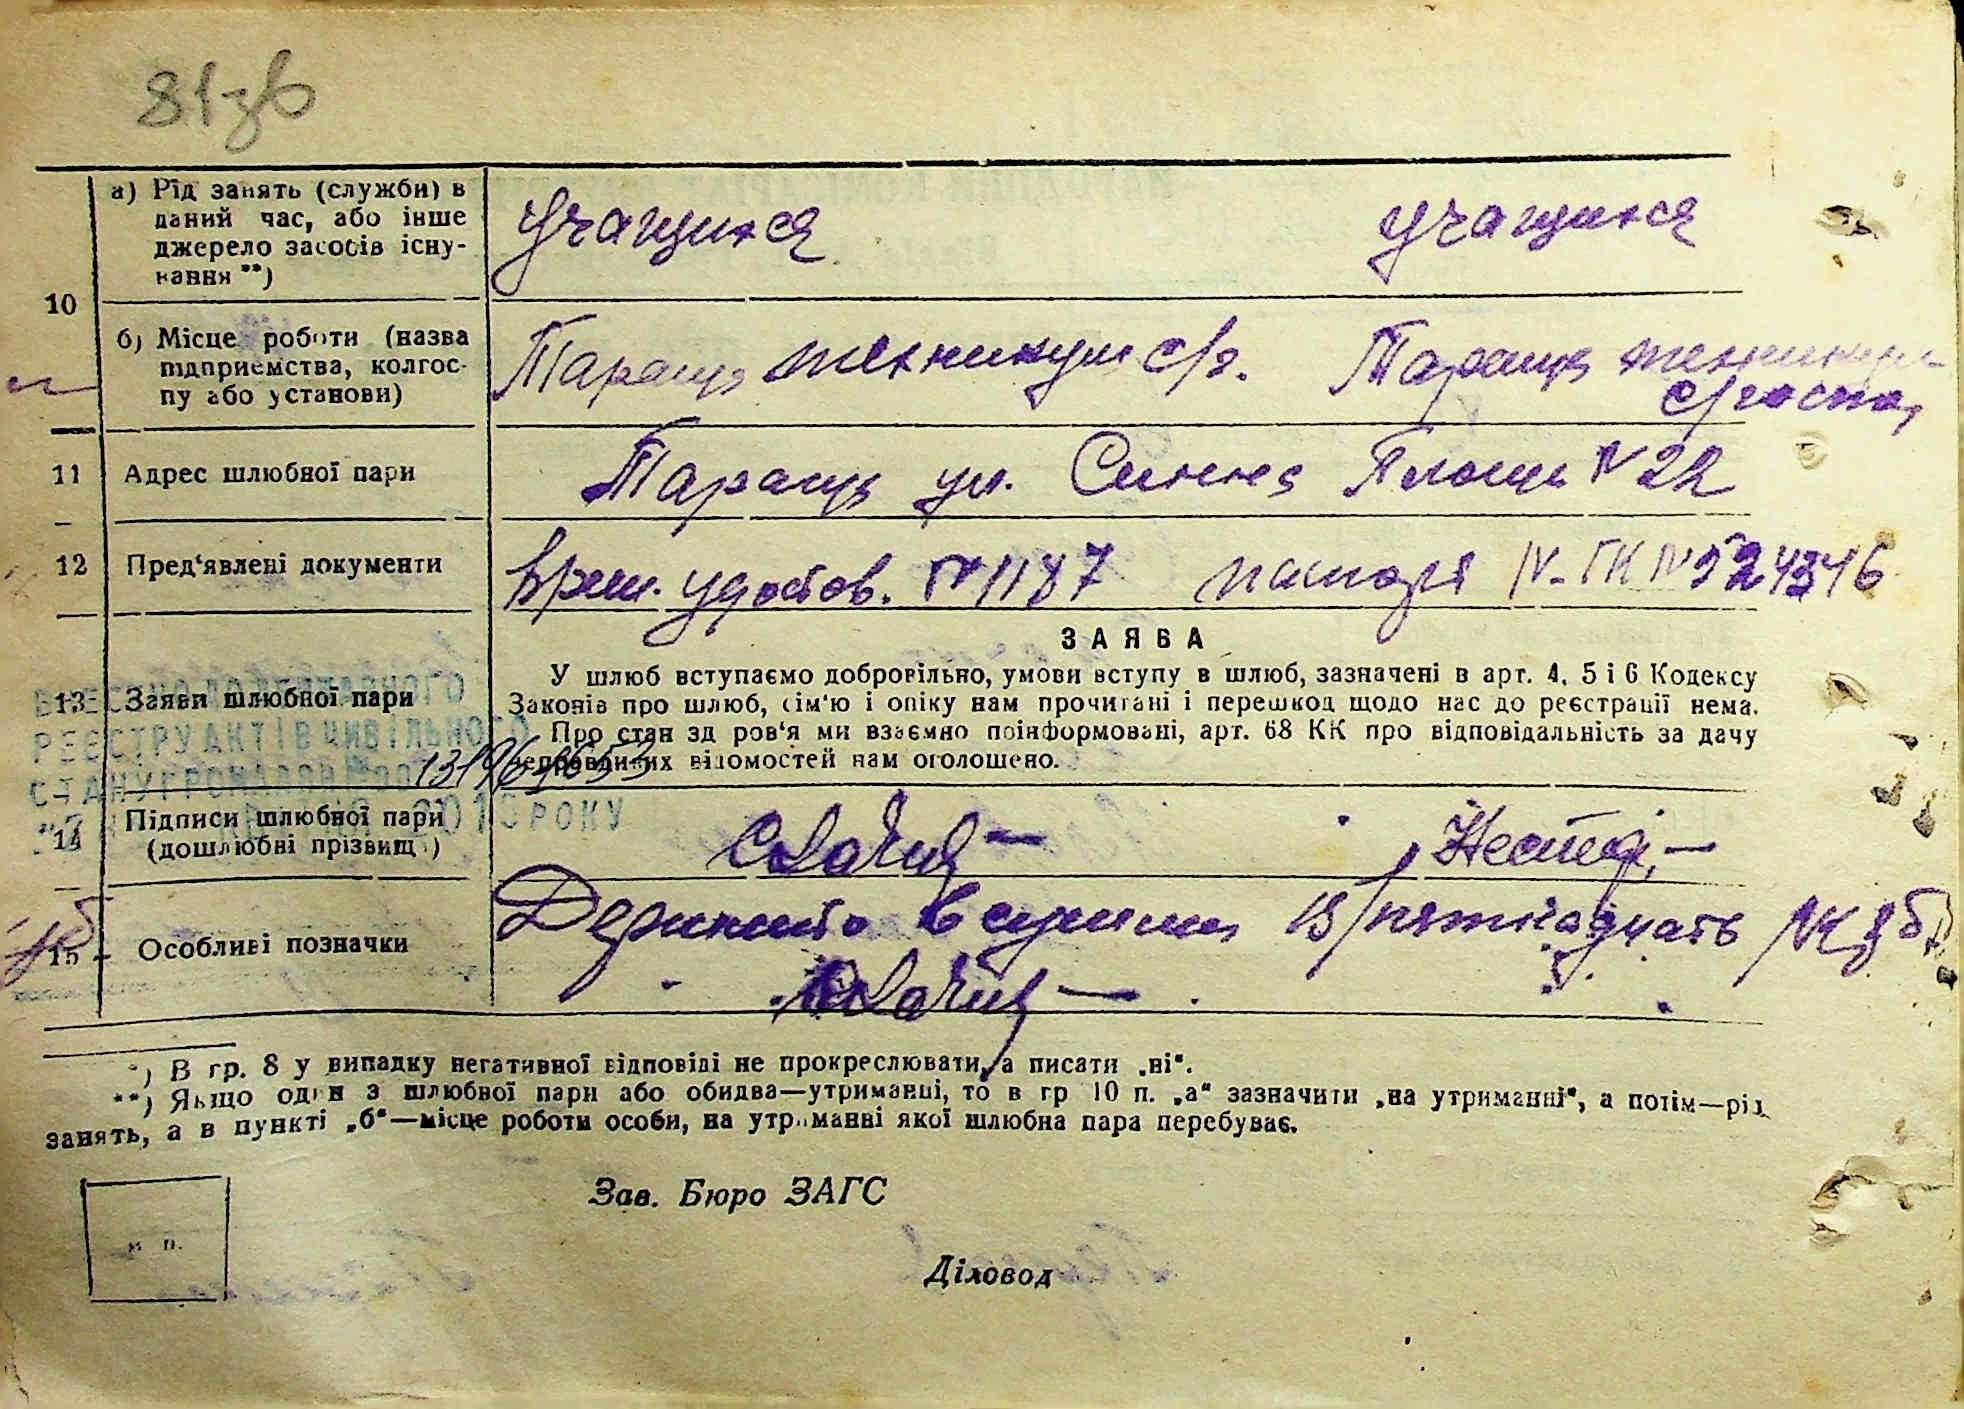 81зв
а) Рід занять (служби) в
даний час, або інше
джерело засобів існу-
вання **)
учащихся
учащихся
10
б) Місце роботи (назва
підприємства, колгос-
пу або установи)
Тараща техникум с/г.
Тараща техникум
с/госпо,
11
Адрес шлюбної пари
Тараща ул. Синна Площа № 22
12
Пред'явлені документи
врем. удостов. № 1187
паспорт IV-ГК № 524346
ЗАЯВА
13
Заяви шлюбної пари
У шлюб вступаємо добровільно, умови вступу в шлюб, зазначені в арт. 4, 5 і 6 Кодексу
Законів про шлюб, сім'ю і опіку нам прочитані і перешкод щодо нас до реєстрації нема.
Про стан здоров'я ми взаємно поінформовані, арт. 68 КК про відповідальність за дачу
неправдивих відомостей нам оголошено.
ДЕРЖАВНОГО
РЕЄСТРУ АКТІВ ЦИВІЛЬНОГО
СТАНУ ГРОМАДЯН
РОКУ
14
Підписи шлюбної пари
(дошлюбні прізвища)
15
Особливі позначки
в сумме 15/пятнадцать
*) В гр. 8 у випадку негативної відповіді не прокреслювати, а писати „ні“.
**) Якщо один з шлюбної пари або обидва—утриманці, то в гр 10 п. „а“ зазначити „на утриманні“, а потім—рід
занять, а в пункті „б“—місце роботи особи, на утриманні якої шлюбна пара перебуває.
Зав. Бюро ЗАГС
м п.
Діловод